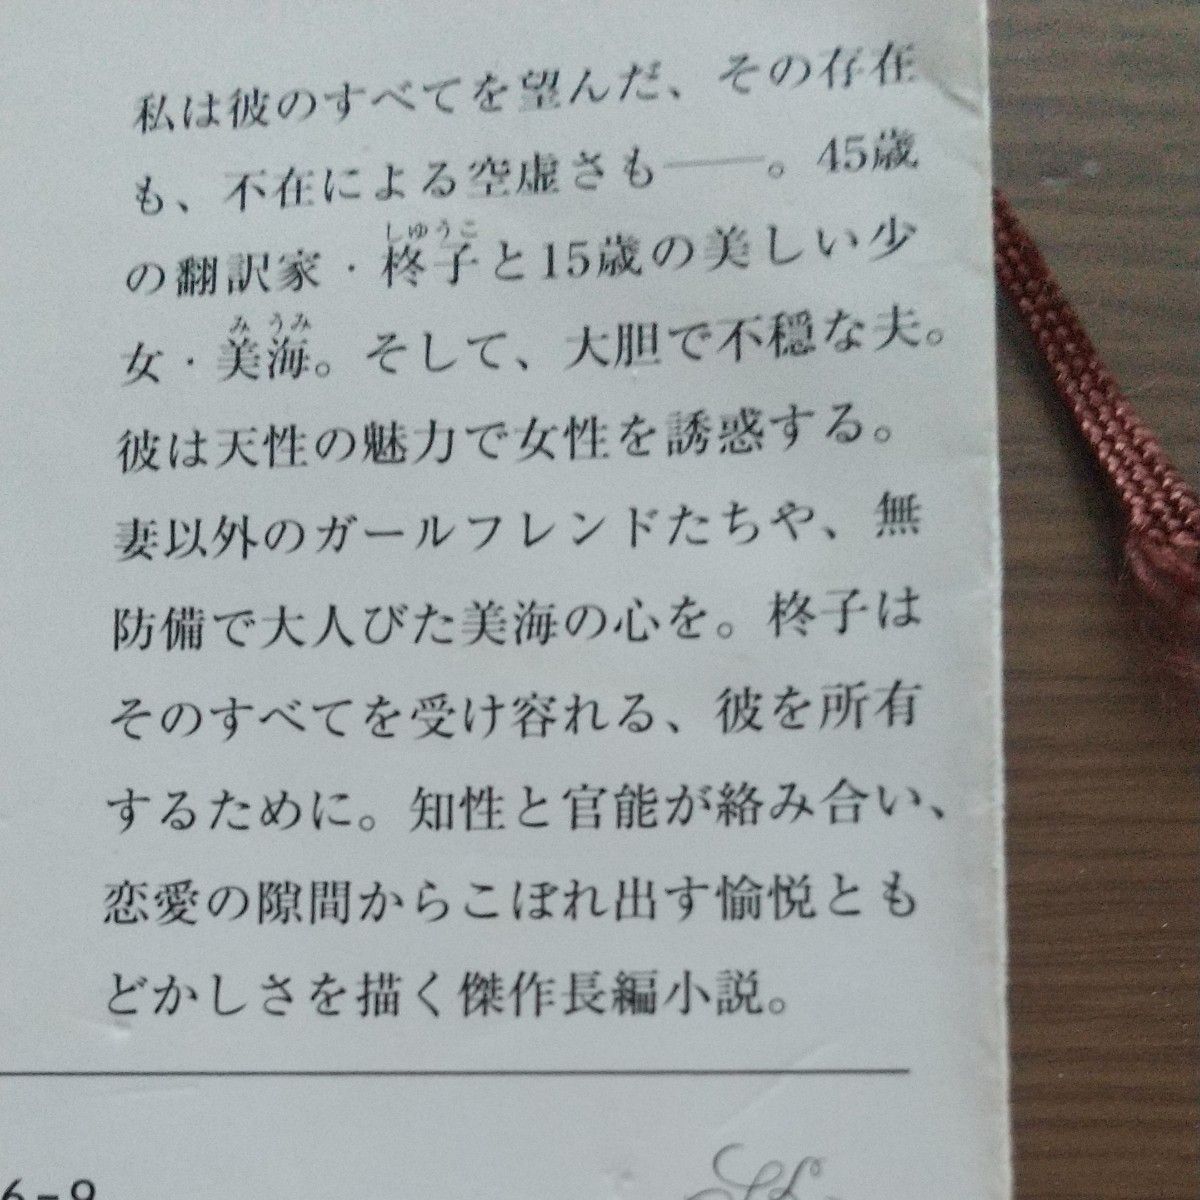 私は彼のすべてを望んだ、その存在
も、不在による空虚さも――。45歳
しゅうこ
の翻訳家・柊子と15歳の美しい少
み うみ
女・美海。そして、大胆で不穏な夫。
彼は天性の魅力で女性を誘惑する。
妻以外のガールフレンドたちや、無
防備で大人びた美海の心を。柊子は
そのすべてを受け容れる、彼を所有
するために。知性と官能が絡み合い、
恋愛の隙間からこぼれ出す愉悦とも
どかしさを描く傑作長編小説。
6-9